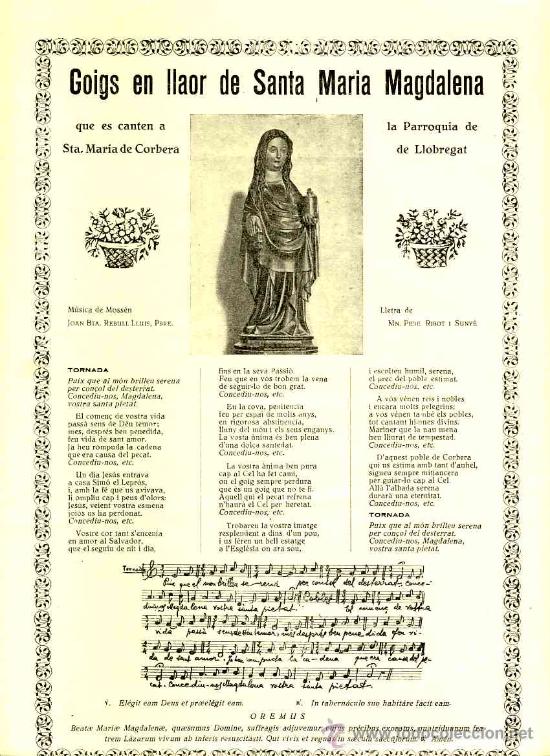 Goigs en llaor de Santa Maria Magdalena
que es canten a
Sta. Maria de Corbera
la Parroquia de
de Llobregat
Música de Mossèn
JOAN BTA. REBULL LLUIS, PBRE.
Lletra de
MN. FIDE RIBOT I SUNYÉ
TORNADA
Puix que al món brilleu serena
per conçol del desterrat.
Concediu-nos, Magdalena,
vostra santa pietat.
El començ de vostra vida
passà sens de Dèu temor;
mes, després ben penedida,
feu vida de sant amor.
Ja heu rompuda la cadena
que era causa del pecat.
Concediu-nos, etc.
Un dia Jesús entrava
a casa Simó el Leprós,
i, amb la fè que us avivava,
li ompliu cap i peus d'olors:
Jesús, veient vostra esmena
joiós us ha perdonat.
Concediu-nos, etc.
Vostre cor tant s'encenia
en amor al Salvador,
que el seguiu de nit i dia,
fins en la seva Passió.
Feu que en vos trobem la vena
de seguir-lo de bon grat.
Concediu-nos, etc.
En la cova, penitencia
feu per espai de molts anys,
en rigorosa abstinencia,
lluny del món i els seus enganys.
La vosta ànima és ben plena
d'una dolça santedat.
Concediu-nos, etc.
La vostra ànima ben pura
cap al Cel ha fet camí,
on el goig sempre perdura
que és un goig que no té fi.
Aquell qui el pecat refrena
n'haurà el Cel per heretat.
Concediu-nos, etc.
Trobaren la vostra imatge
resplendent a dins d'un pou,
i us féren un bell estatge
a l'Església on ara sou,
i escolteu humil, serena,
el prec del poble estimat.
Concediu-nos, etc.
A vós vénen reis i nobles
i encara molts pelegrins;
a vós vénen també els pobles,
tot cantant himnes divins.
Mariner que la nau mena
heu lliurat de tempestad.
Concediu-nos, etc.
D'aquest poble de Corbera
qui us estima amb tant d'anhel,
sigueu sempre mitjancera
per guiar-lo cap al Cel.
Allà l'albada serena
durarà una eternitat.
Concediu-nos, etc.
TORNADA
Puix que al món brilleu serena
per conçol del desterrat.
Concediu-nos, Magdalena,
vostra santa pietat.
Tornada
Puix que al mon brilleu se-rena per conçol del desterrat, Conce-
diu-nos Magdalena vostra santa pietat. Cobles El començ de vostra
vida passà sens de Deu temor, mes, després ben pene-dida feu vi-
da de sant amor. Ja heu rompuda la ca-dena que era causa del pe-
cat. Concediu-nos Magdalena vostra santa pietat.
℣. Elégit eam Deus et præelégit eam.
℟. In tabernáculo suo habitáre facit eam.
OREMUS
Beatæ Mariæ Magdalenæ, quæsumus Domine, suffragiis adjuvemur: cujus precibus exoratus, quatriduanum fra-
trem Lázarum vivum ab inferis resuscitásti. Qui vivis et regnas in sæcula sæculorum. ℟. Amen.
todocoleccion.net